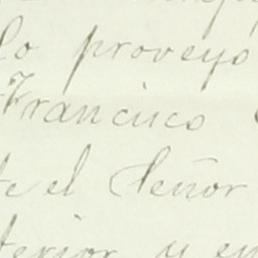 lo proveyo
Francisco
te el Señor
terior y en